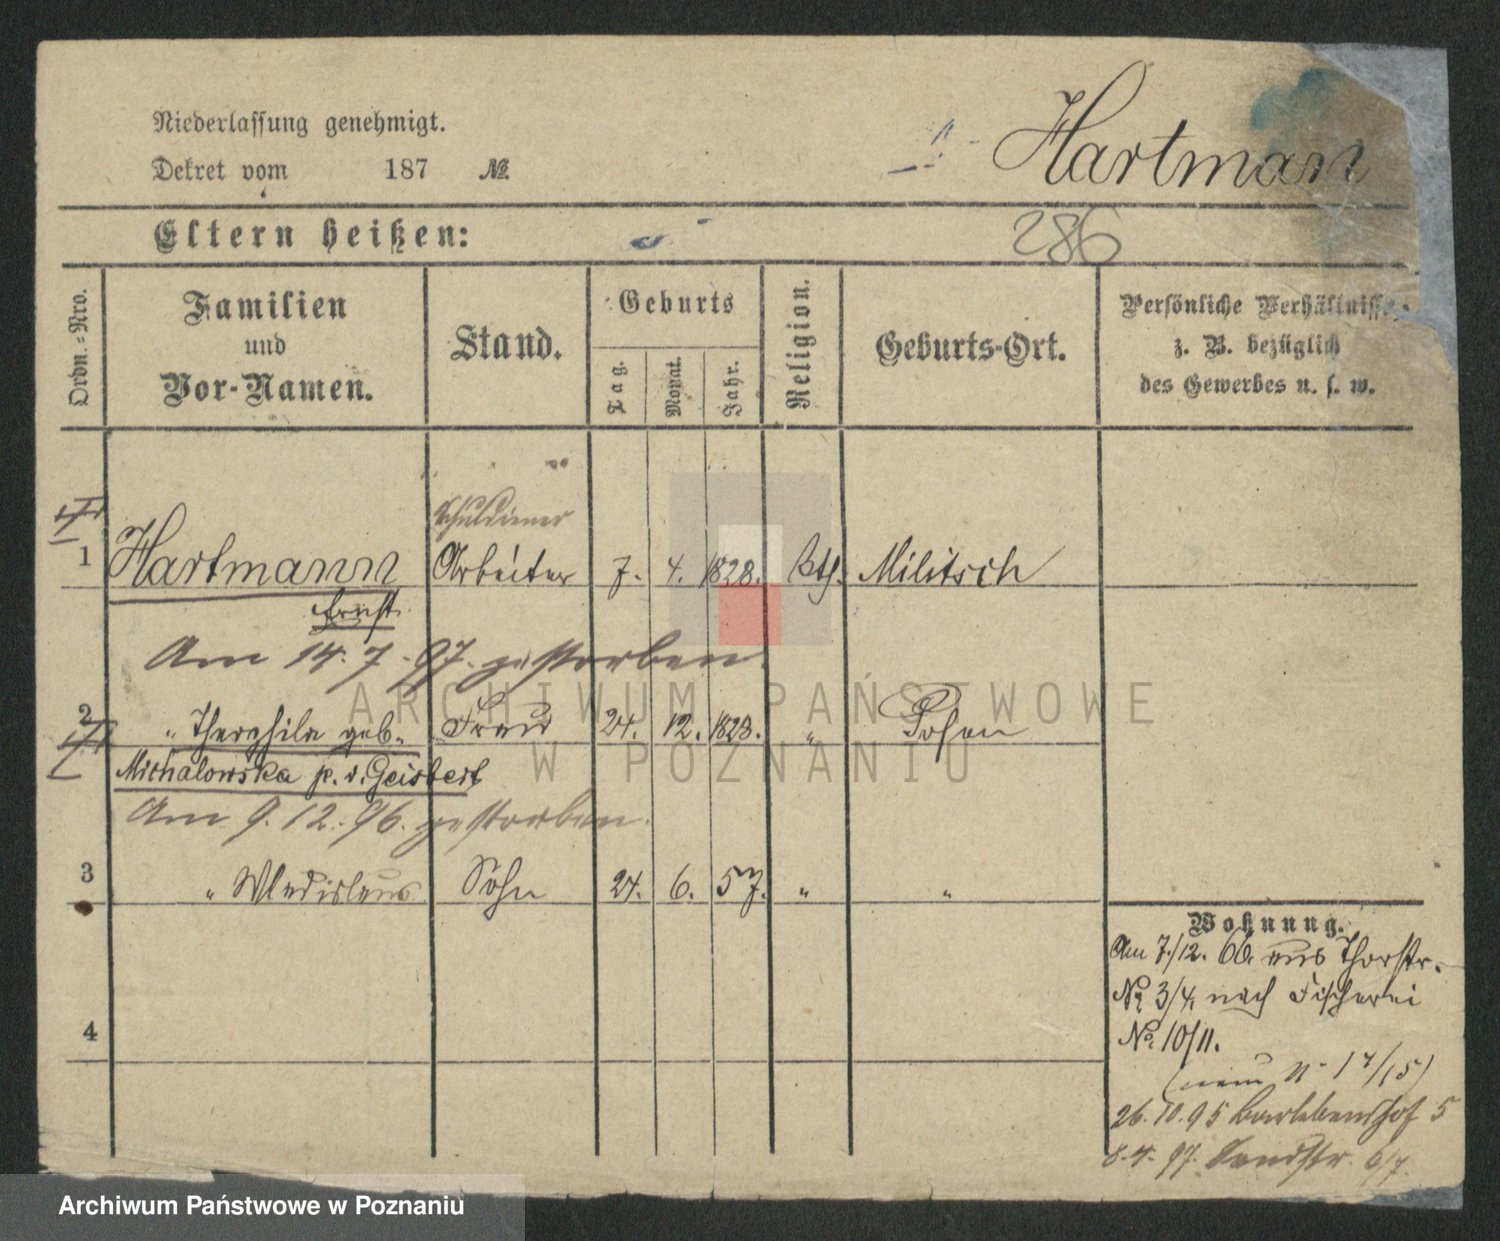 Niederlassung genehmigt.
Dekret vom 187 №
Hartman
Eltern heißen:
286
Ordn.-Nro.
Familien
und
Vor-Namen.
Stand.
Geburts
Tag.
Monat.
Jahr.
Religion.
Geburts-Ort.
Persönliche Verhältnisse
z. B. bezüglich
des Gewerbes u. s. w.
Schuldiener
1 Hartmann Arbeiter 7. 4. 1828. kth. Militsch
Ernst
Am 14.7.97. gestorben.
2 " Theophila geb. Frau 24. 12. 1828. " Posen
Michalowska p. v. Geisbert
Am 9.12.96. gestorben.
3 " Wladislaus Sohn 24. 6. 57. " "
4
Wohnung.
Am 7/12. 66. aus Thorstr.
No. 3/4. nach Fischerei
No. 10/11.
(neu N 17/15)
26.10.95 Barlebenshof 5
8.4.97. Sandstr. 6/7.
ARCHIWUM PAŃSTWOWE
W POZNANIU
Archiwum Państwowe w Poznaniu